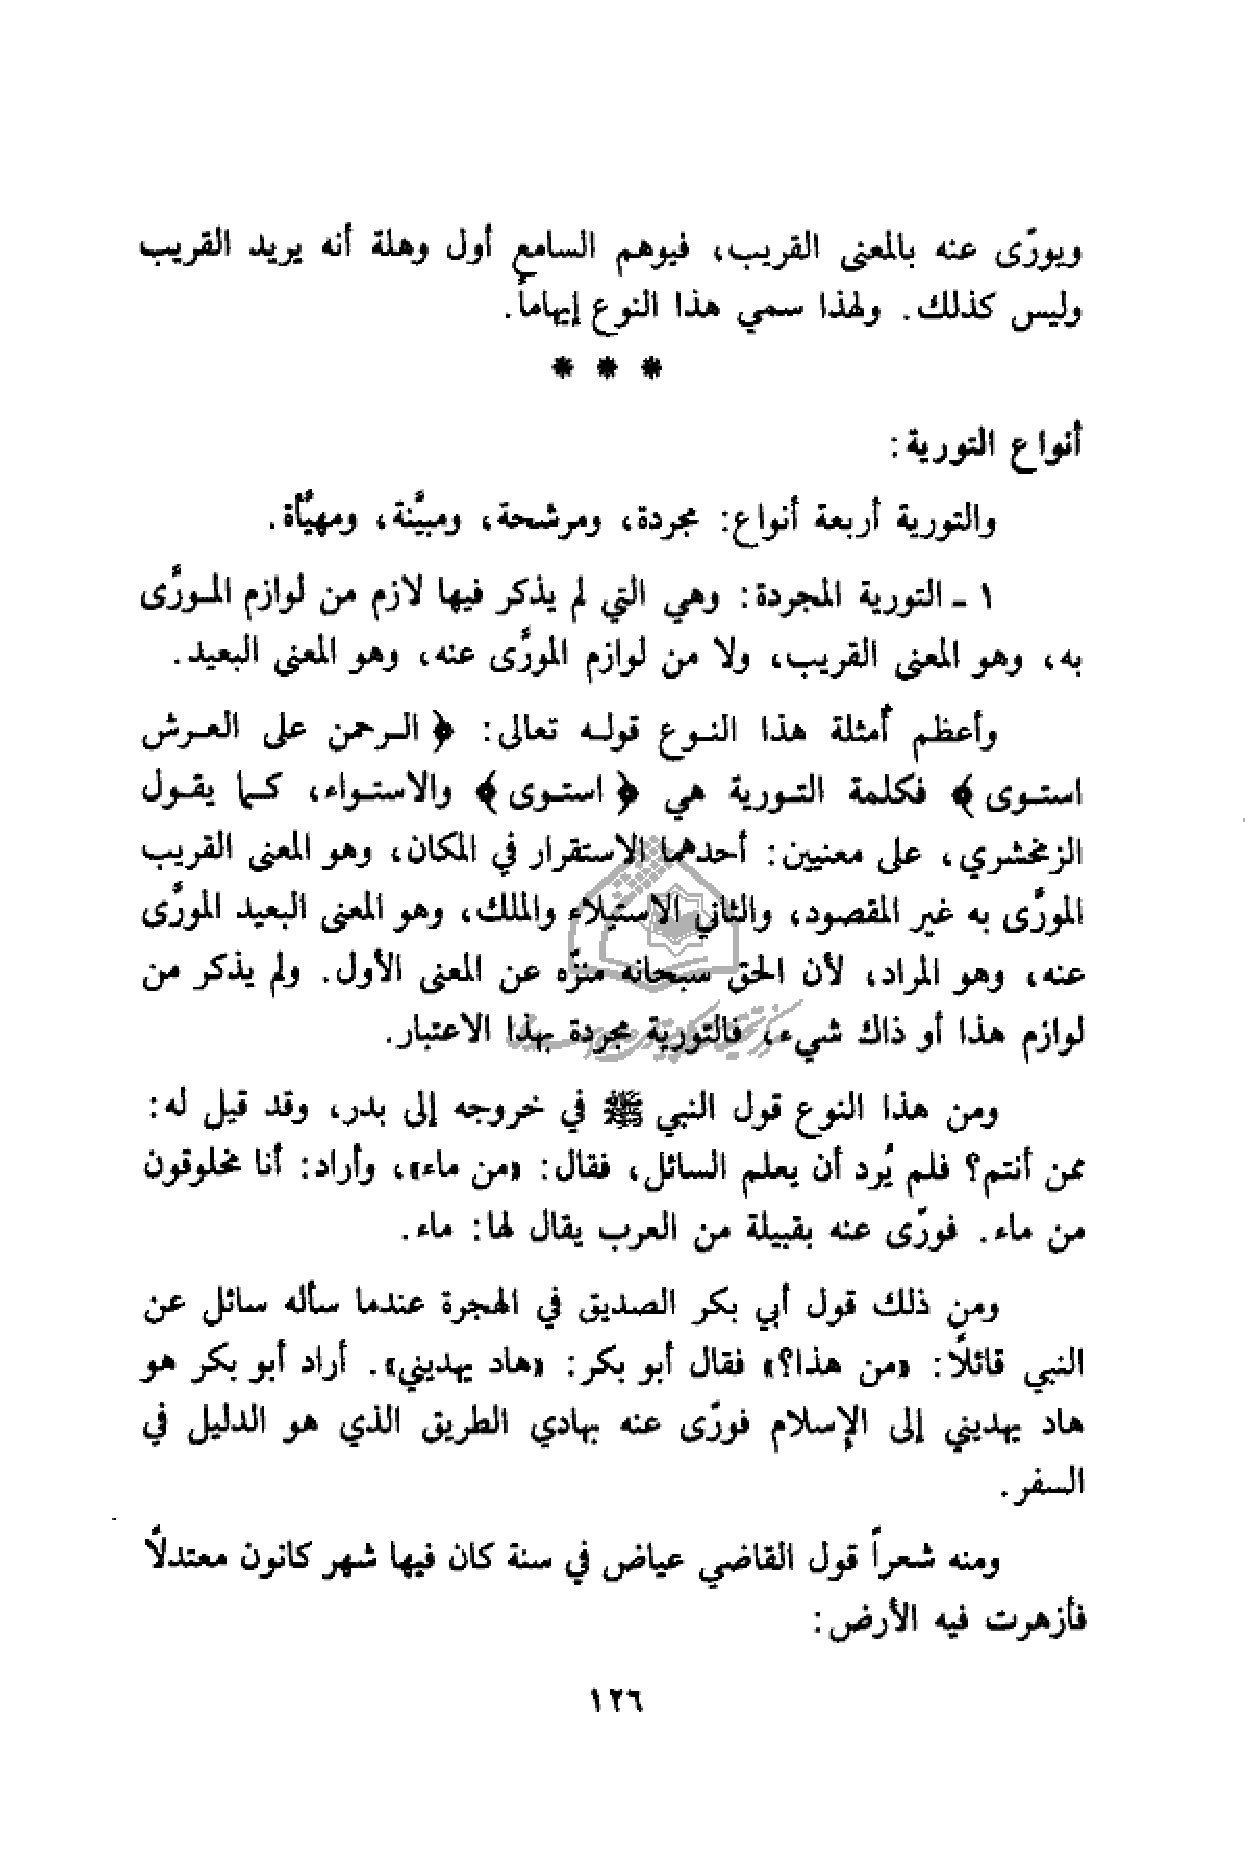 ويورّى عنه بالمعنى القريب، فيوهم السامع أول وهلة أنه يريد القريب
وليس كذلك. ولهذا سمي هذا النوع إيهاماً.
* * *
أنواع التورية:
والتورية أربعة أنواع: مجردة، ومرشحة، ومبيَّنة، ومهيَّأة.
١ ـ التورية المجردة: وهي التي لم يذكر فيها لازم من لوازم المـورَّى
به، وهو المعنى القريب، ولا من لوازم المورَّى عنه، وهو المعنى البعيد.
وأعظم أمثلة هذا النـوع قولـه تعالى: ﴿ الـرحمن على العـرش
استـوى ﴾ فكلمة التـورية هي ﴿ استـوى ﴾ والاستـواء، كـما يقـول
الزمخشري، على معنيين: أحدهما الاستقرار في المكان، وهو المعنى القريب
المورَّى به غير المقصود، والثاني الاستيلاء والملك، وهو المعنى البعيد المورَّى
عنه، وهو المراد، لأن الحق سبحانه منزّه عن المعنى الأول. ولم يذكر من
لوازم هذا أو ذاك شيء، فالتورية مجردة بهذا الاعتبار.
ومن هذا النوع قول النبي ﷺ في خروجه إلى بدر، وقد قيل له:
ممن أنتم؟ فلم يُرد أن يعلم السائل، فقال: «من ماء»، وأراد: أنا مخلوقون
من ماء. فورّى عنه بقبيلة من العرب يقال لها: ماء.
ومن ذلك قول أبي بكر الصديق في الهجرة عندما سأله سائل عن
النبي قائلاً: «من هذا؟» فقال أبو بكر: «هاد يهديني». أراد أبو بكر هو
هاد يهديني إلى الإسلام فورّى عنه بهادي الطريق الذي هو الدليل في
السفر.
ومنه شعراً قول القاضي عياض في سنة كان فيها شهر كانون معتدلاً
فأزهرت فيه الأرض:
١٢٦